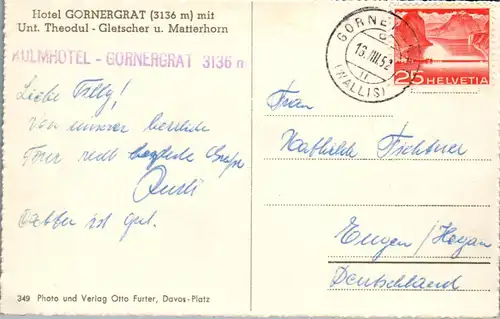 Hotel GORNERGRAT (3136 m) mit
Unt. Theodul - Gletscher u. Matterhorn
KULMHOTEL - GORNERGRAT 3136 m
GORNERGRAT
13.VIII.52
(WALLIS)
25 HELVETIA
Liebe
Von unser herrliche
Tour recht herzliche Grüße
Wetter ist gut.
Frau
Mathilde
Engen / Hegau
Deutschland
349 Photo und Verlag Otto Furter, Davos-Platz